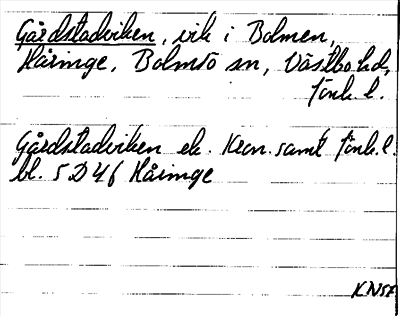 Gårdstadviken, vik i Bolmen,
Håringe, Bolmsö sn, Västbo hd,
Jönk. l.
Gårdstadviken ek. Kron. samt Jönk. l.
bl. 5 D 4f Håringe